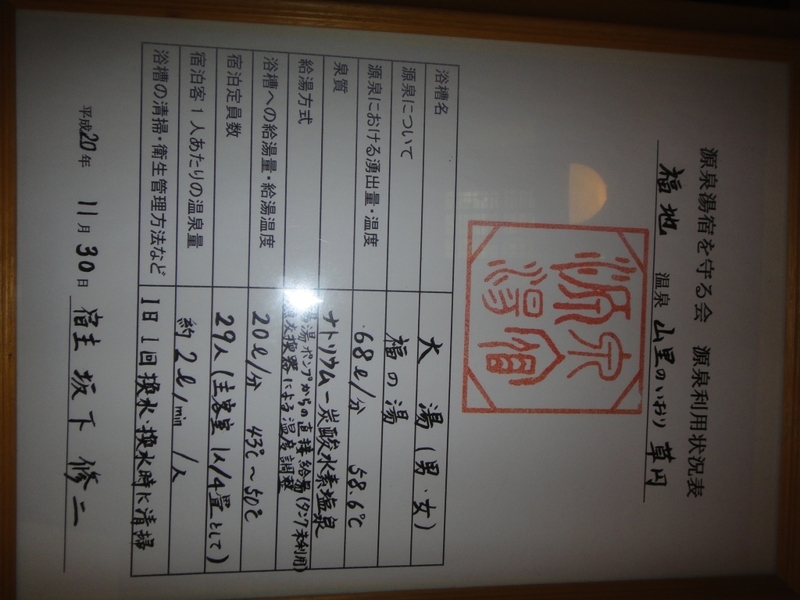 源泉湯宿を守る会 源泉利用状況表
福地 温泉 山里のいおり 草円
源泉湯宿
浴槽名 大湯(男・女)
源泉について 福の湯
源泉における湧出量・温度 68ℓ/分 58.6℃
泉質 ナトリウム-炭酸水素塩泉
給湯方式 湯ポンプからの直接給湯(タンク未利用)
交換器による温度調整
浴槽への給湯量・給湯温度 20ℓ/分 43℃~50℃
宿泊定員数 29人(主客室1人/4畳として)
宿泊客1人あたりの温泉量 約2ℓ/min/人
浴槽の清掃・衛生管理方法など 1日1回換水・換水時に清掃
平成20年 11月30日 宿主 坂下修二